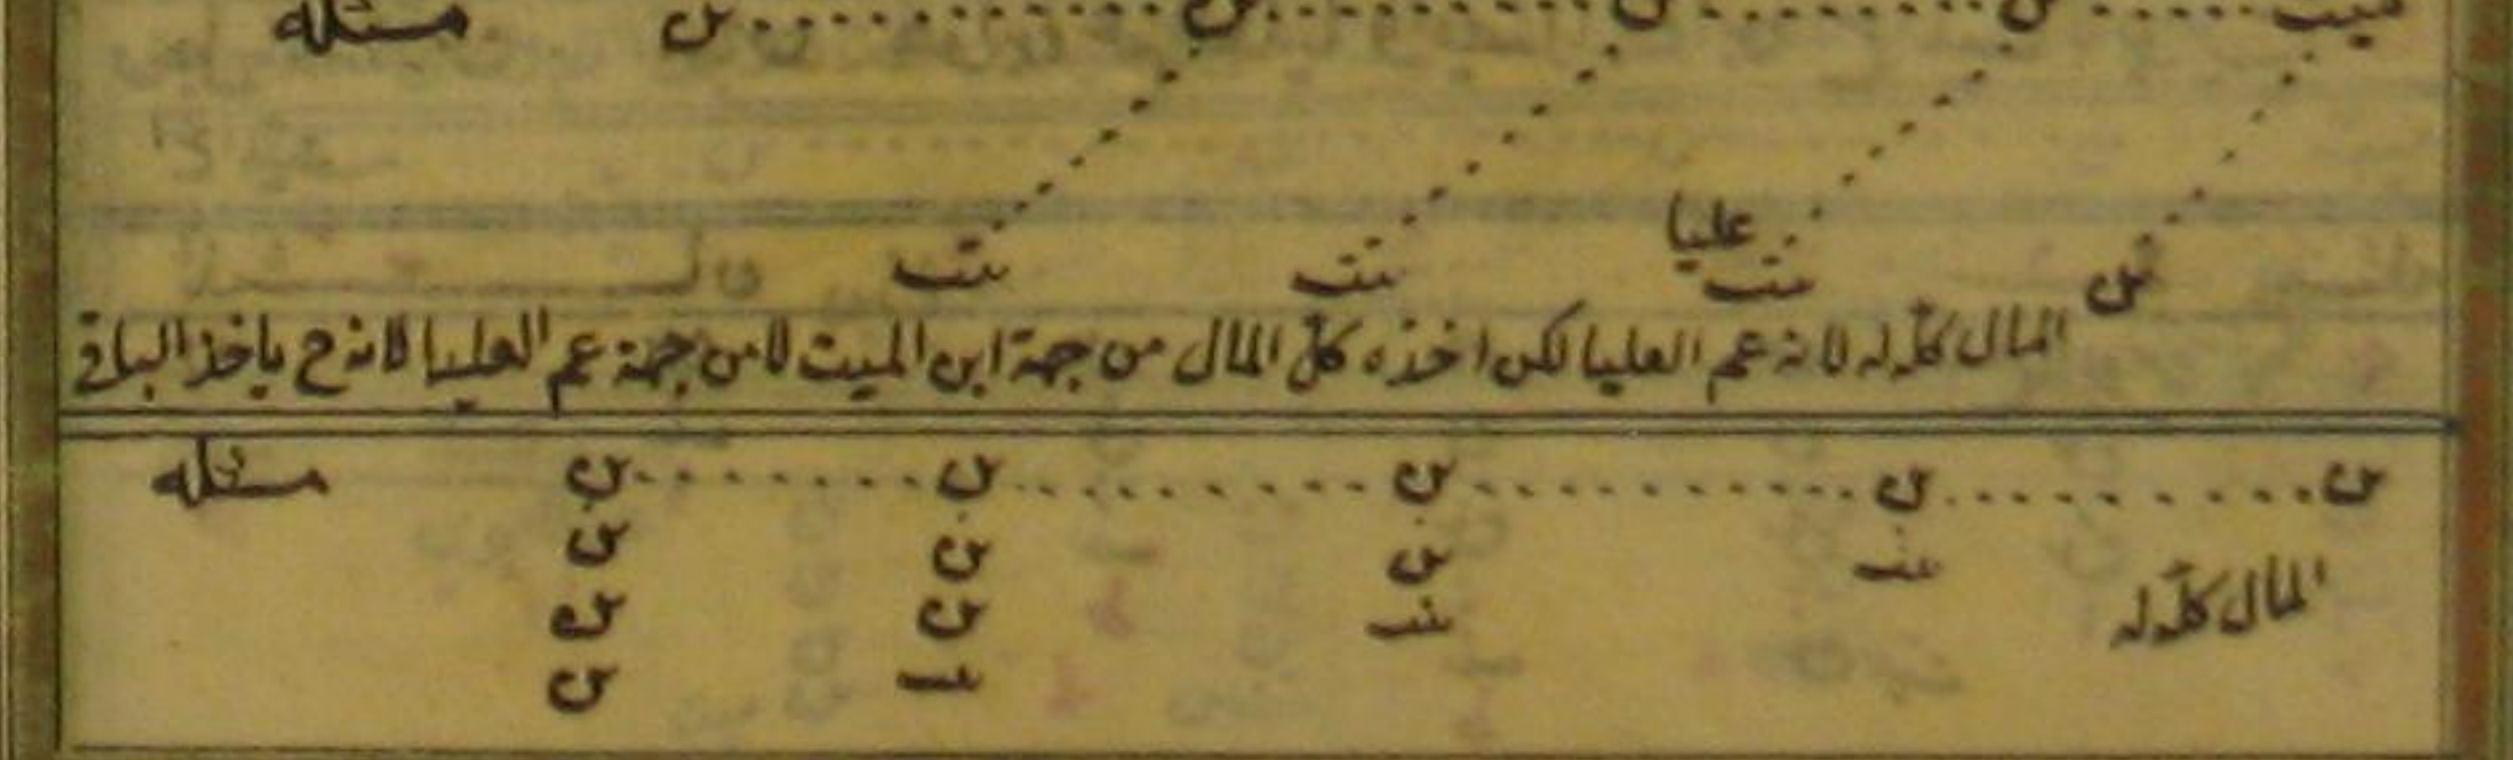 ميت ن ن ن ن مسئله
عليا
بن بنت بنت بنت
المال كله له لانه عم العليا لكن اخذه كل المال من جهة ابن الميت لا من جهة عم العليا لانه ح ياخذ الباقي
بن بن بن بن بن مسئله
المال كله له بنت بن بن بن
بنت بن بن
بن